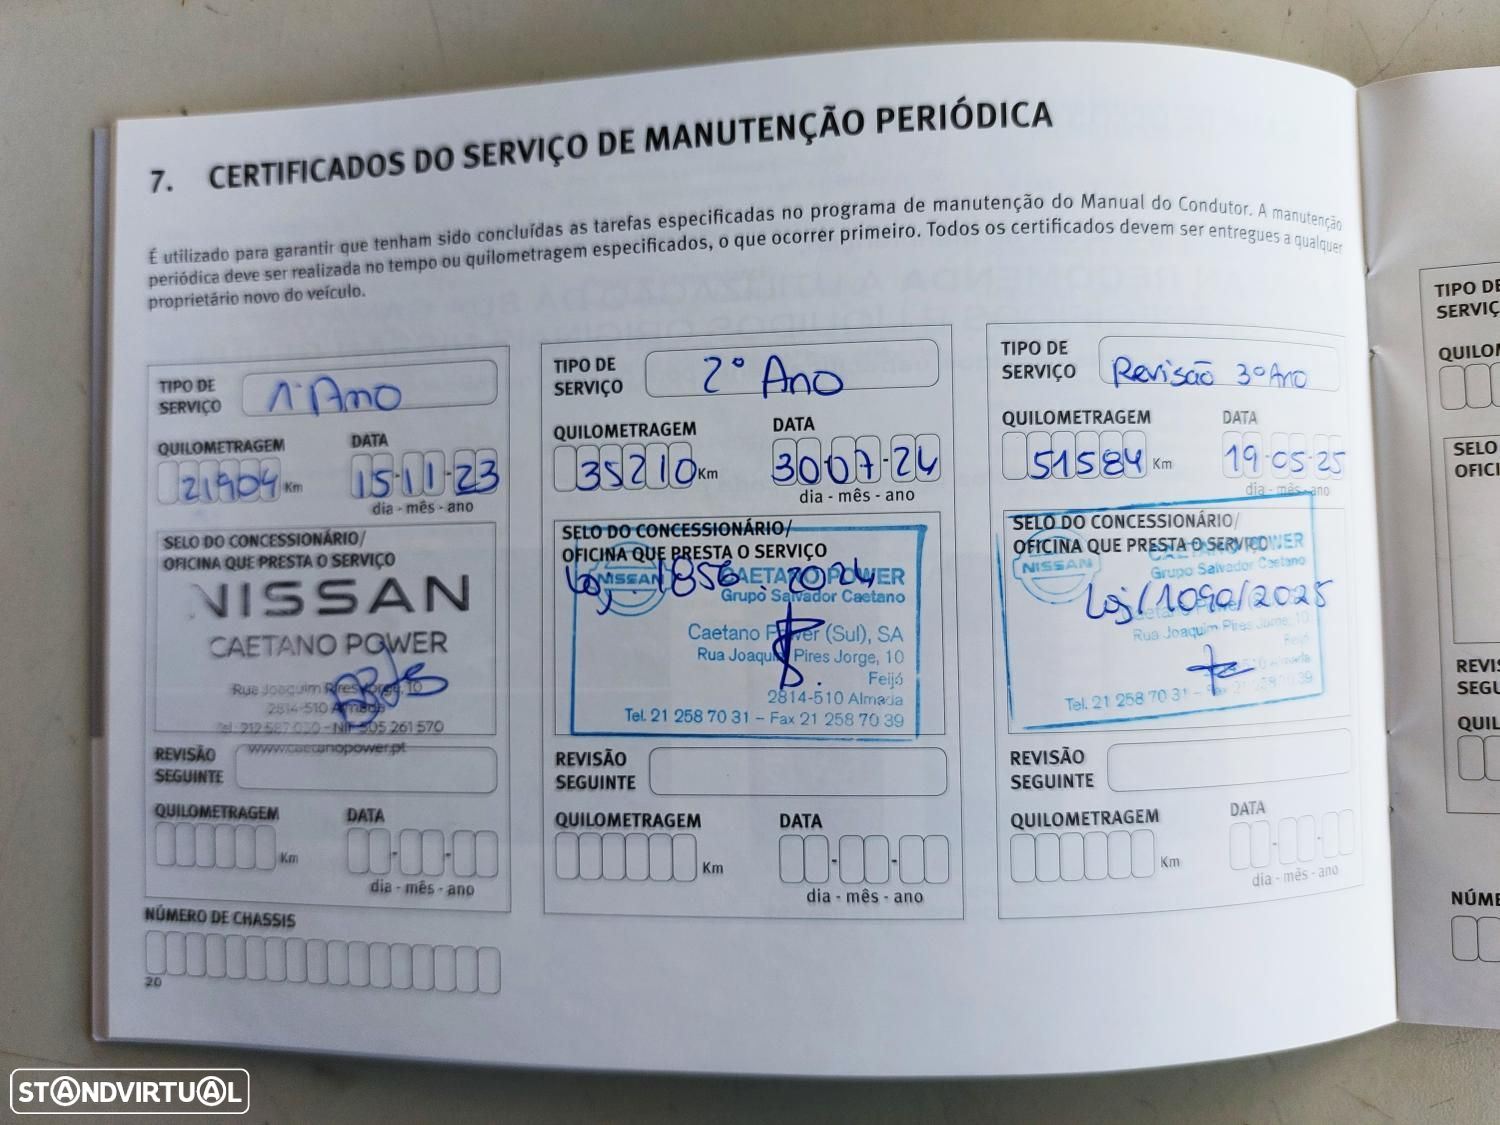 7. CERTIFICADOS DO SERVIÇO DE MANUTENÇÃO PERIÓDICA
É utilizado para garantir que tenham sido concluídas as tarefas especificadas no programa de manutenção do Manual do Condutor. A manutenção
periódica deve ser realizada no tempo ou quilometragem especificados, o que ocorrer primeiro. Todos os certificados devem ser entregues a qualquer
proprietário novo do veículo.
TIPO DE
SERVIÇO
1º Ano
QUILOMETRAGEM
DATA
21904 Km
15-11-23
dia - mês - ano
SELO DO CONCESSIONÁRIO/
OFICINA QUE PRESTA O SERVIÇO
NISSAN
CAETANO POWER
Rua Joaquim Pires Jorge, 10
2814-510 Almada
NIF 505 261 570
www.caetanopower.pt
REVISÃO
SEGUINTE
QUILOMETRAGEM
DATA
Km
dia - mês - ano
NÚMERO DE CHASSIS
20
TIPO DE
SERVIÇO
2º Ano
QUILOMETRAGEM
DATA
35210 Km
30-07-24
dia - mês - ano
SELO DO CONCESSIONÁRIO/
OFICINA QUE PRESTA O SERVIÇO
1856 . 2024
NISSAN
CAETANO POWER
Grupo Salvador Caetano
Caetano Power (Sul), SA
Rua Joaquim Pires Jorge, 10
Feijó
2814-510 Almada
Tel. 21 258 70 31 – Fax 21 258 70 39
REVISÃO
SEGUINTE
QUILOMETRAGEM
DATA
Km
dia - mês - ano
TIPO DE
SERVIÇO
Revisão 3º Ano
QUILOMETRAGEM
DATA
51584 Km
19-05-25
dia - mês - ano
SELO DO CONCESSIONÁRIO/
OFICINA QUE PRESTA O SERVIÇO
NISSAN
CAETANO POWER
Grupo Salvador Caetano
/1090/2025
Rua Joaquim Pires Jorge, 10
Feijó
Almada
Tel. 21 258 70 31 – Fax 21 258 70 39
REVISÃO
SEGUINTE
QUILOMETRAGEM
DATA
Km
dia - mês - ano
TIPO DE
SERVIÇ
QUILOM
SELO
OFICI
REVIS
SEGU
QUIL
NÚME
STANDVIRTUAL